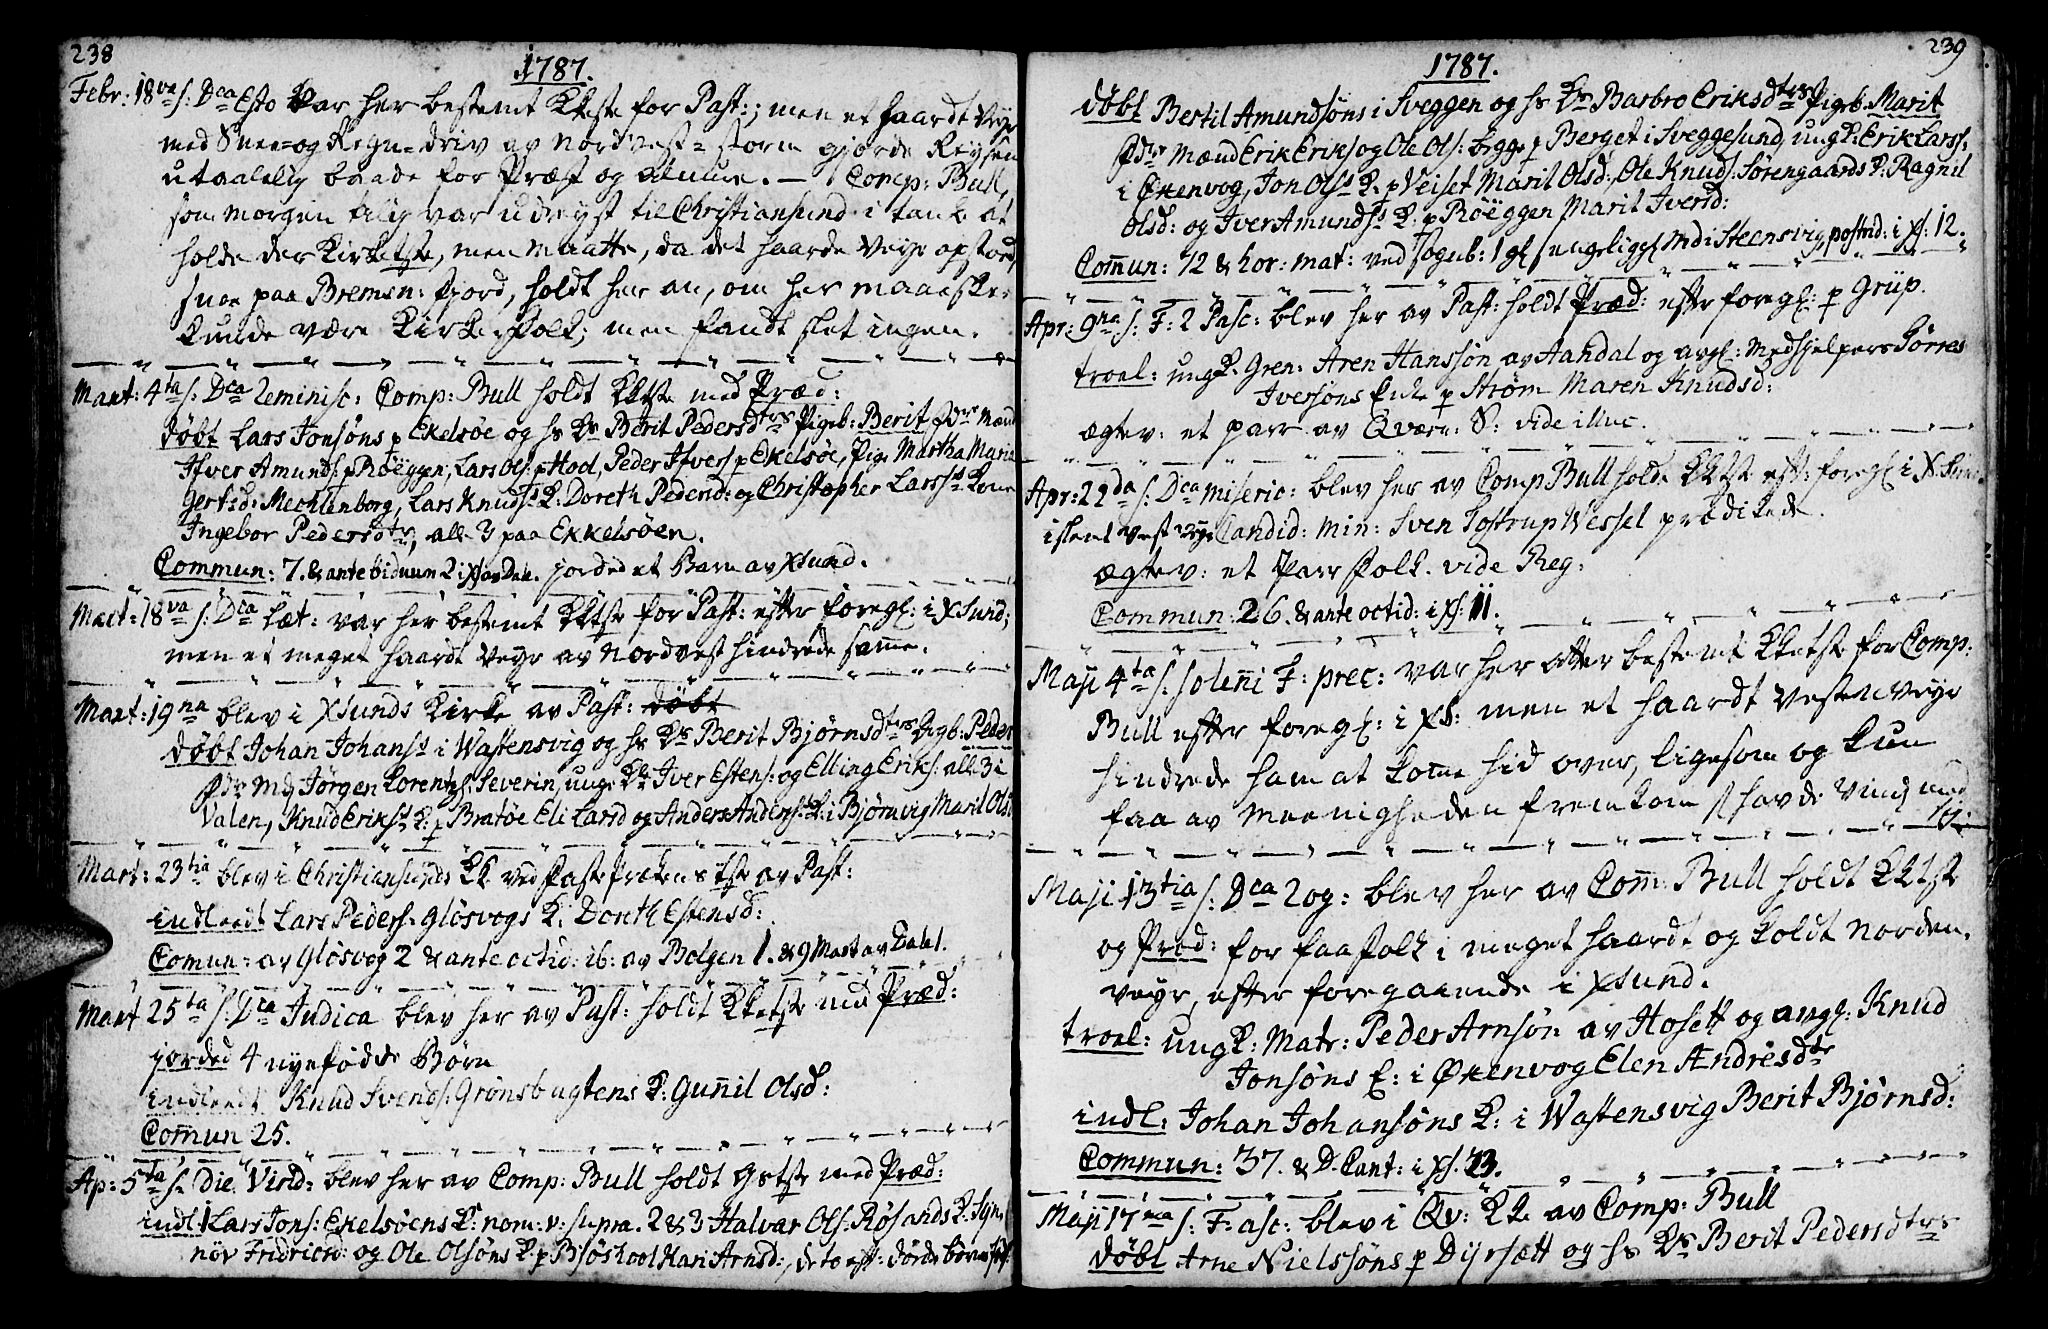 238
1787.
Febr: 18va s: Dca Esto var her bestemt Kkste for Past:; men et haardt Veyr
med Snee- og Regn-driv av Nordvest-storm gjorde Reysen
utaalelig baade for Præst og Almue. — Comp: Bull,
som morgen tilig var udreyst til Christiansund i tanke at
holde der Kirketste, men maatte, da det haarde Veyr opstod,
paa Bremsn: fjord, holdt her an, om her maaeske
kunde være Kirke-folk; men fandt slet ingen.
Mart: 4ta s: Dca Reminisc: Comp: Bull holdt Kkste med Præd:
døbt Lars Jonsøns p Ekelsøe og hs Ks Berit Pedersdtrs Pigeb: Berit fdre Mænd
Ifver Amunds: p Røeggen, Lars Ols: p Hol, Peder Ifvers p Ekelsøe, Pige Martha Maria
Gertsd: Mechlenborg, Lars Knuds: K: Doreth Pedersd: og Christopher Larss: Kone
Ingebor Pedersdtr, alle 3 paa Ekkelsøen.
Commun: 7. & ante biduum 2 i Xs av Dale. jorded et Barn av Xsund.
Mart: 18va s: Dca Læt: var her bestemt Kktste for Past: efter foregl: i XSund;
men et meget haardt Veyr av Nordvest hindrede samme.
Mart: 19na blev i Xsunds Kirke av Past: døbt
døbt Johan Johans: i Wastensvig og hs Ks Berit Bjørnsdtrs Drgb: Peder
fdre Md Jørgen Lorentzs: Severin, unge Kk Iver Estens: og Elling Eriks: alle 3 i
Valen, Knud Eriks: K: p Bratøe Eli Larsd og Anders Anders: K: i Bjørnvig Marit Olsd
Mart: 23tia blev i Christiansunds Kk ved Fasteprækens tste av Past:
indleedt Lars Peders: Gløsvogs K: Dorth Estensd:
Comun: av Gløsvog 2 & ante octid: ib: av Bolgen 1. & 9 Mart av Dale 1.
Mart 25ta s: Dca Judica blev her av Past: holdt Kketste med Præd:
jorded 4 nyefødde Børn
indleedt Knud Svends: Grønsbugtens K: Gunnil Olsd:
Commun 25.
Ap: 5ta s: Die Virid: blev her av Comp: Bull holdt Gstste med Præd:
indl: 1 Lars Jons: Ekelsøens K: nom: v: supra. 2 & 3 Halvar Ols: Røsands K: Syn-
növ Fridricsd: og Ole Olsøns K: p Bjøshool Kari Arnsd:, de to eft: dørde børne
239
1787.
døbt Bertil Amundsøns i Sveggen og hs Ks Barbro Eriksdtrs Pigeb. Marit
fdre Mænd Erik Eriks og Ole Ols: begge p Berget i Sveggesund, ung K: Erik Larss:
i Økenvog, Jon Ols: K: p Veiset Marit Olsd:, Ole Knuds: Sørengaards K: Ragnil
Olsd: og Iver Amunds: K: p Røeggen Marit Iversd:
Commun: 72 & hor: mat: ved sogneb: 1 gl sengeliggl Md i Steensvig, postrid: i Xs: 12.
Apr: 9na s: F: 2 Pasc: blev her av Past: holdt Præd: efter foregl: p Grip.
troel: ung K. Gren: Aren Hanssøn av Aandal og avgl: Medhjelpers Sørres
Iversøns Enke p Strøm Maren Knudsd:
ægtev: et parr av Qværn: S: vide illuc.
Apr: 22da s: Dca Miseric: blev her av Comp Bull holdt Kktste eft: foregl i X.
Candid: Min: Sven Tostrup Wessel prædikede.
ægtev: et Parr folk. vide Reg:
Commun: 26. & ante octid: i Xs: 11.
Maji 4ta s: solenni F: prec: var her atter bestemt Kketste for Comp:
Bull efter foregl: i Xs: men et haardt Vesten veyr
hindrede ham at kome hid over, ligesom og kun
faa av Meenigheden fremkom
Maji 13tia s: Dca Rog: blev her av Com: Bull holdt Kktste
og Præd: for faa folk i meget haardt og koldt Norden-
veyr, efter foregaaende i Xsund.
troel: ung K: Matr: Peder Arnsøn av Hosett og avgl: Knud
Jonsøns E: i Økenvog Elen Ændresdtr
indl: Johan Johansøns K: i Wastensvig Berit Bjørnsd:
Commun: 37. & D. Cant: i Xs. 73.
Maji 17ma s: F: asc: blev i Qv: Kke av Comp: Bull
døbt Arne Nielssøns p Dyrsætt og hs Ks Berit Pedersdtrs